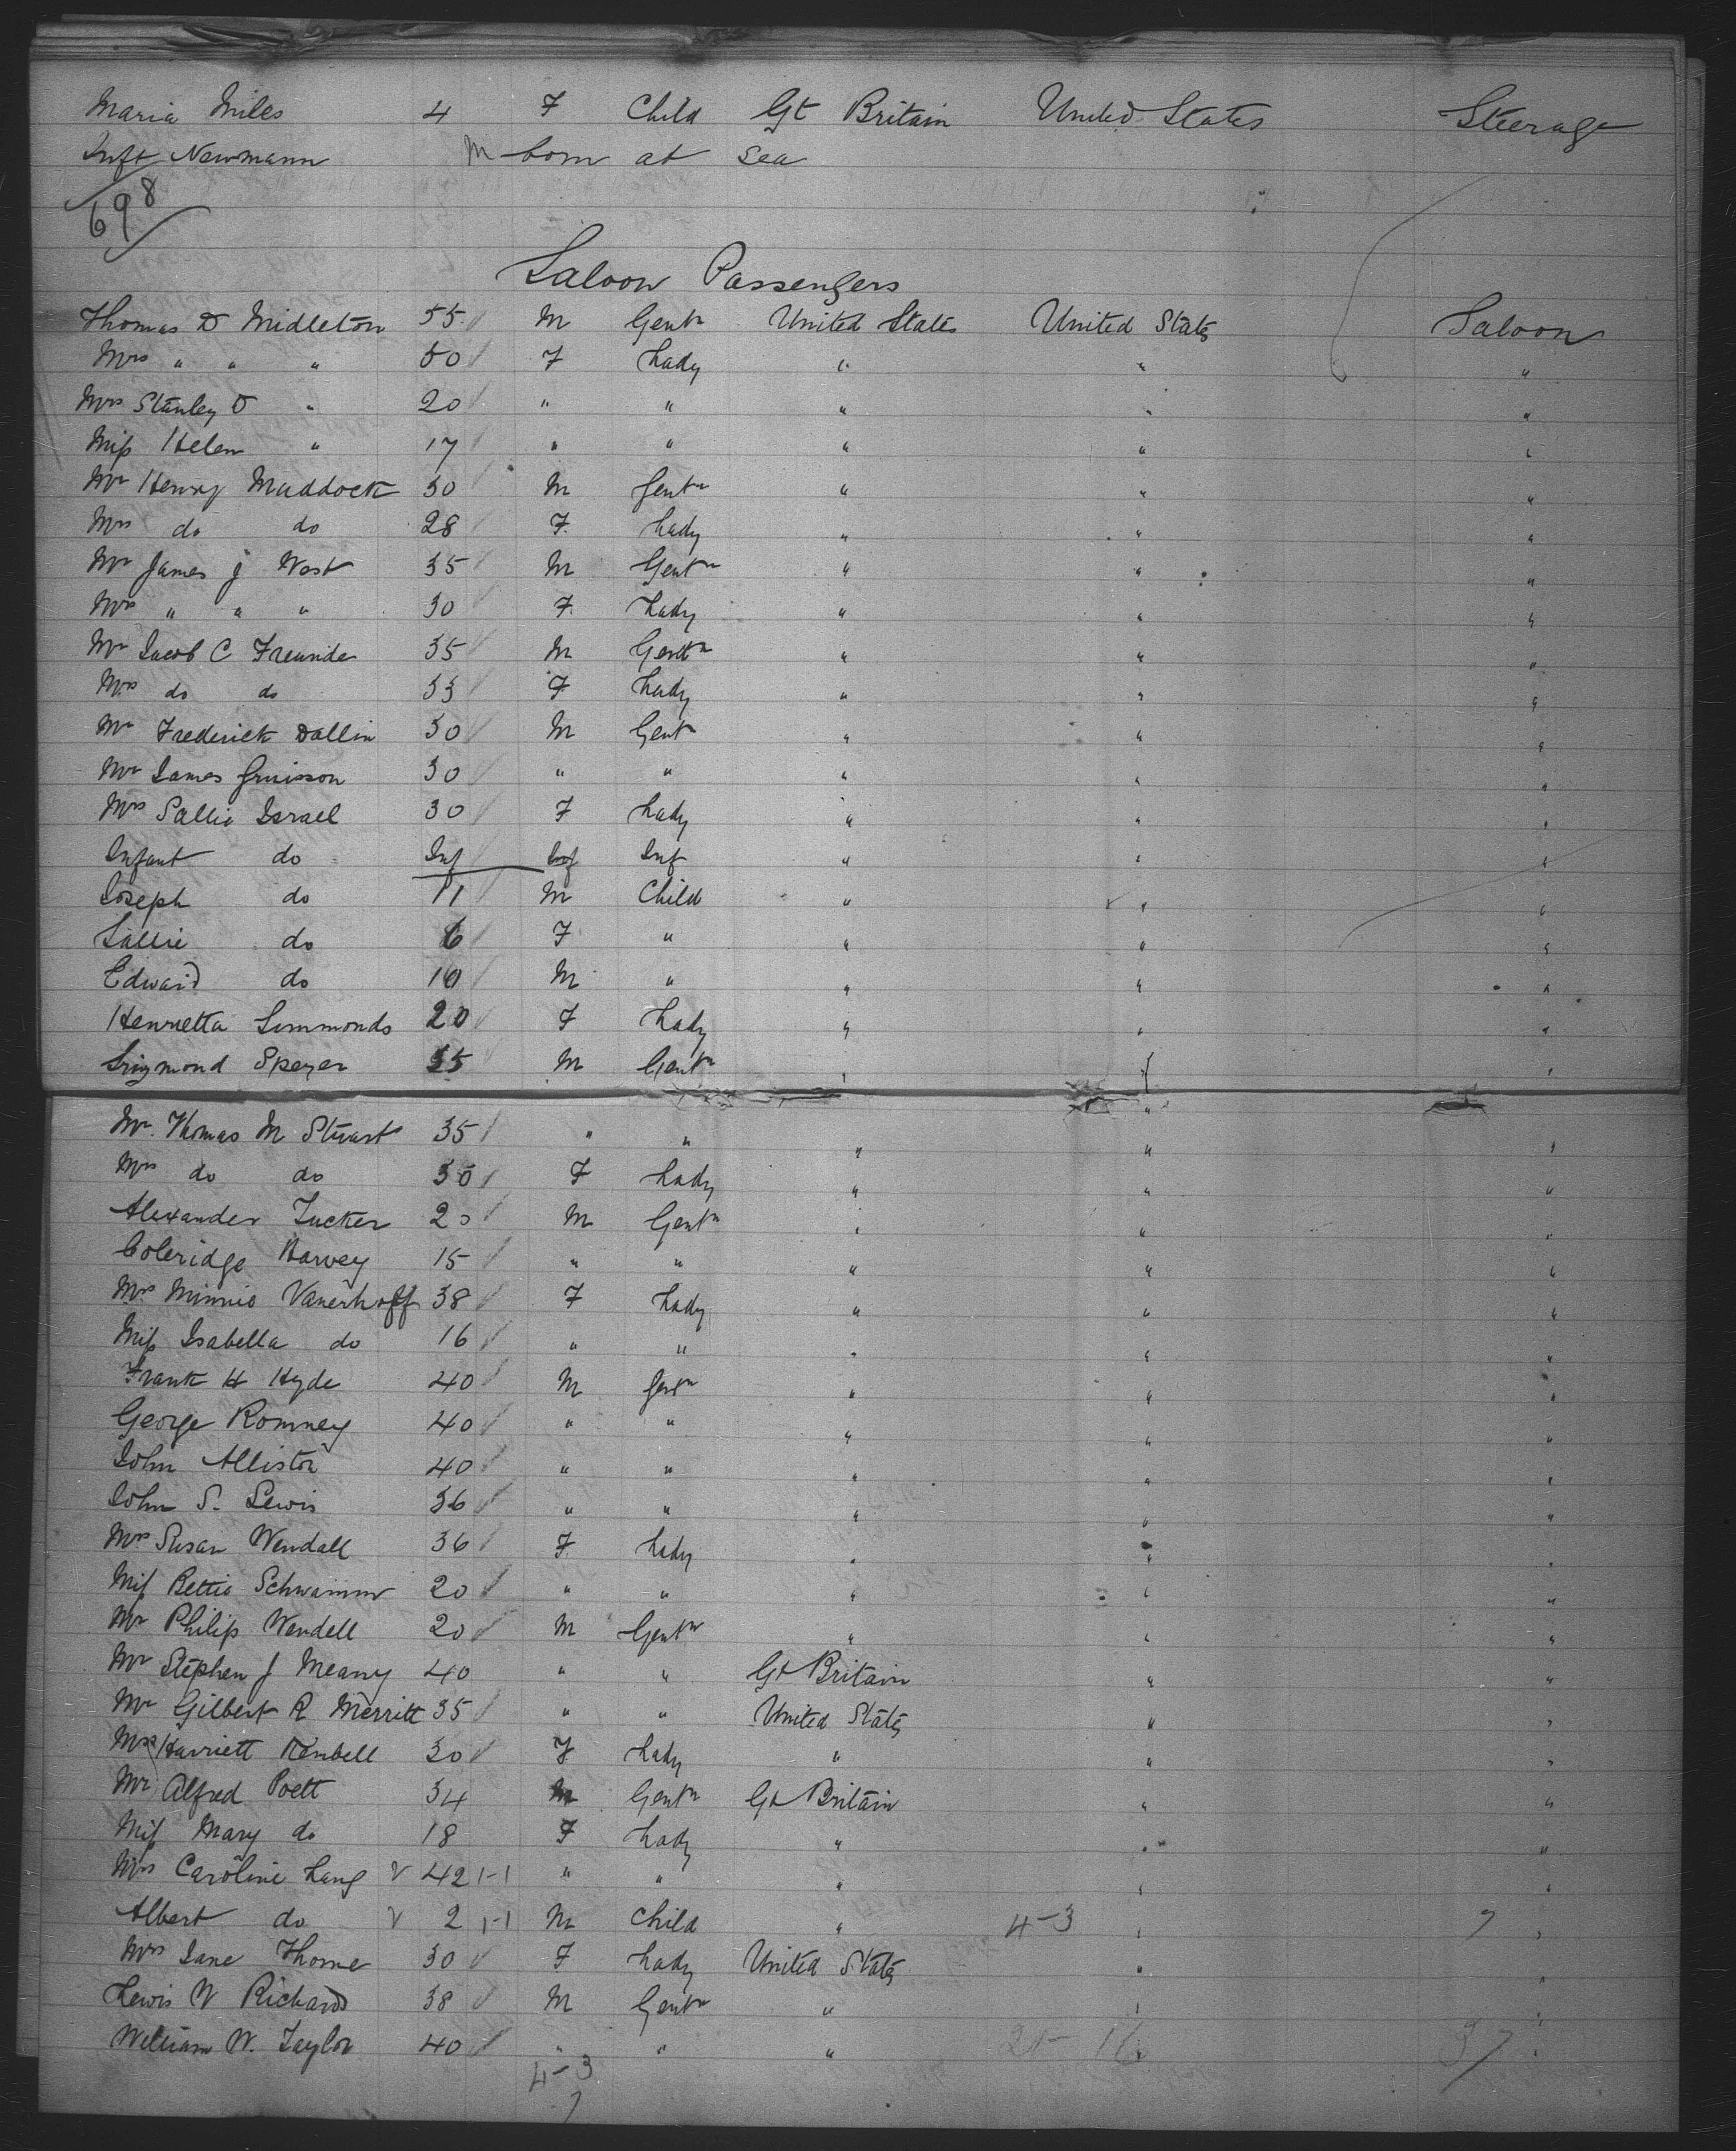 Maria Miles 4 F Child Gt Britain United States Steerage
Inft Newmann M born at sea
698
Saloon Passengers
Thomas D Midleton 55 M Gentn United States United States Saloon
Mrs " " " 50 F Lady " " "
Mrs Stanley D " 20 " " " " "
Miss Helen " 17 " " " " "
Mr Henry Maddock 30 M Gentn " " "
Mrs do do 28 F Lady " " "
Mr James J West 35 M Gentn " " "
Mrs " " " 30 F Lady " " "
Mr Jacob C 35 M Gentn " " "
Mrs do do 33 F Lady " " "
Mr Frederick Dallin 30 M Gentn " " "
Mr James 30 " " " " "
Mrs Sallie Israel 30 F Lady " " "
Infant do Inf Inf Inf " " "
Joseph do 11 M Child " " "
Sallie do 6 F " " " "
Edward do 10 M " " " "
Henrietta Simmonds 20 F Lady " " "
Speyer 35 M Gentn " " "
Mr Thomas M Stuart 35 " " " " "
Mrs do do 30 F Lady " " "
Alexander Tucker 20 M Gentn " " "
Coleridge Harvey 15 " " " " "
Mrs Minnie Vanerhoff 38 F Lady " " "
Miss Isabella do 16 " " " " "
Frank H Hyde 40 M Gentn " " "
George Romney 40 " " " " "
John Allister 40 " " " " "
John S. Lewis 36 " " " " "
Mrs Susan Wendall 36 F Lady " " "
Miss Bettie Schwamm 20 " " " " "
Mr Philip Wendell 20 M Gentn " " "
Mr Stephen J Meany 40 " " Gt Britain " "
Mr Gilbert R Merritt 35 " " United States " "
Mrs Harriett Kenbell 30 F Lady " " "
Mr Alfred Poett 34 M Gentn Gt Britain " "
Miss Mary do 18 F Lady " " "
Mrs Caroline Lang 42 1-1 " " " " "
Albert do 2 1-1 M Child " 4-3 " 7 "
Mrs Jane Thorne 30 F Lady United States " "
Lewis W Richards 38 M Gentn " " "
William W. Taylor 40 " " " 21- 16 " 37 "
4-3
7